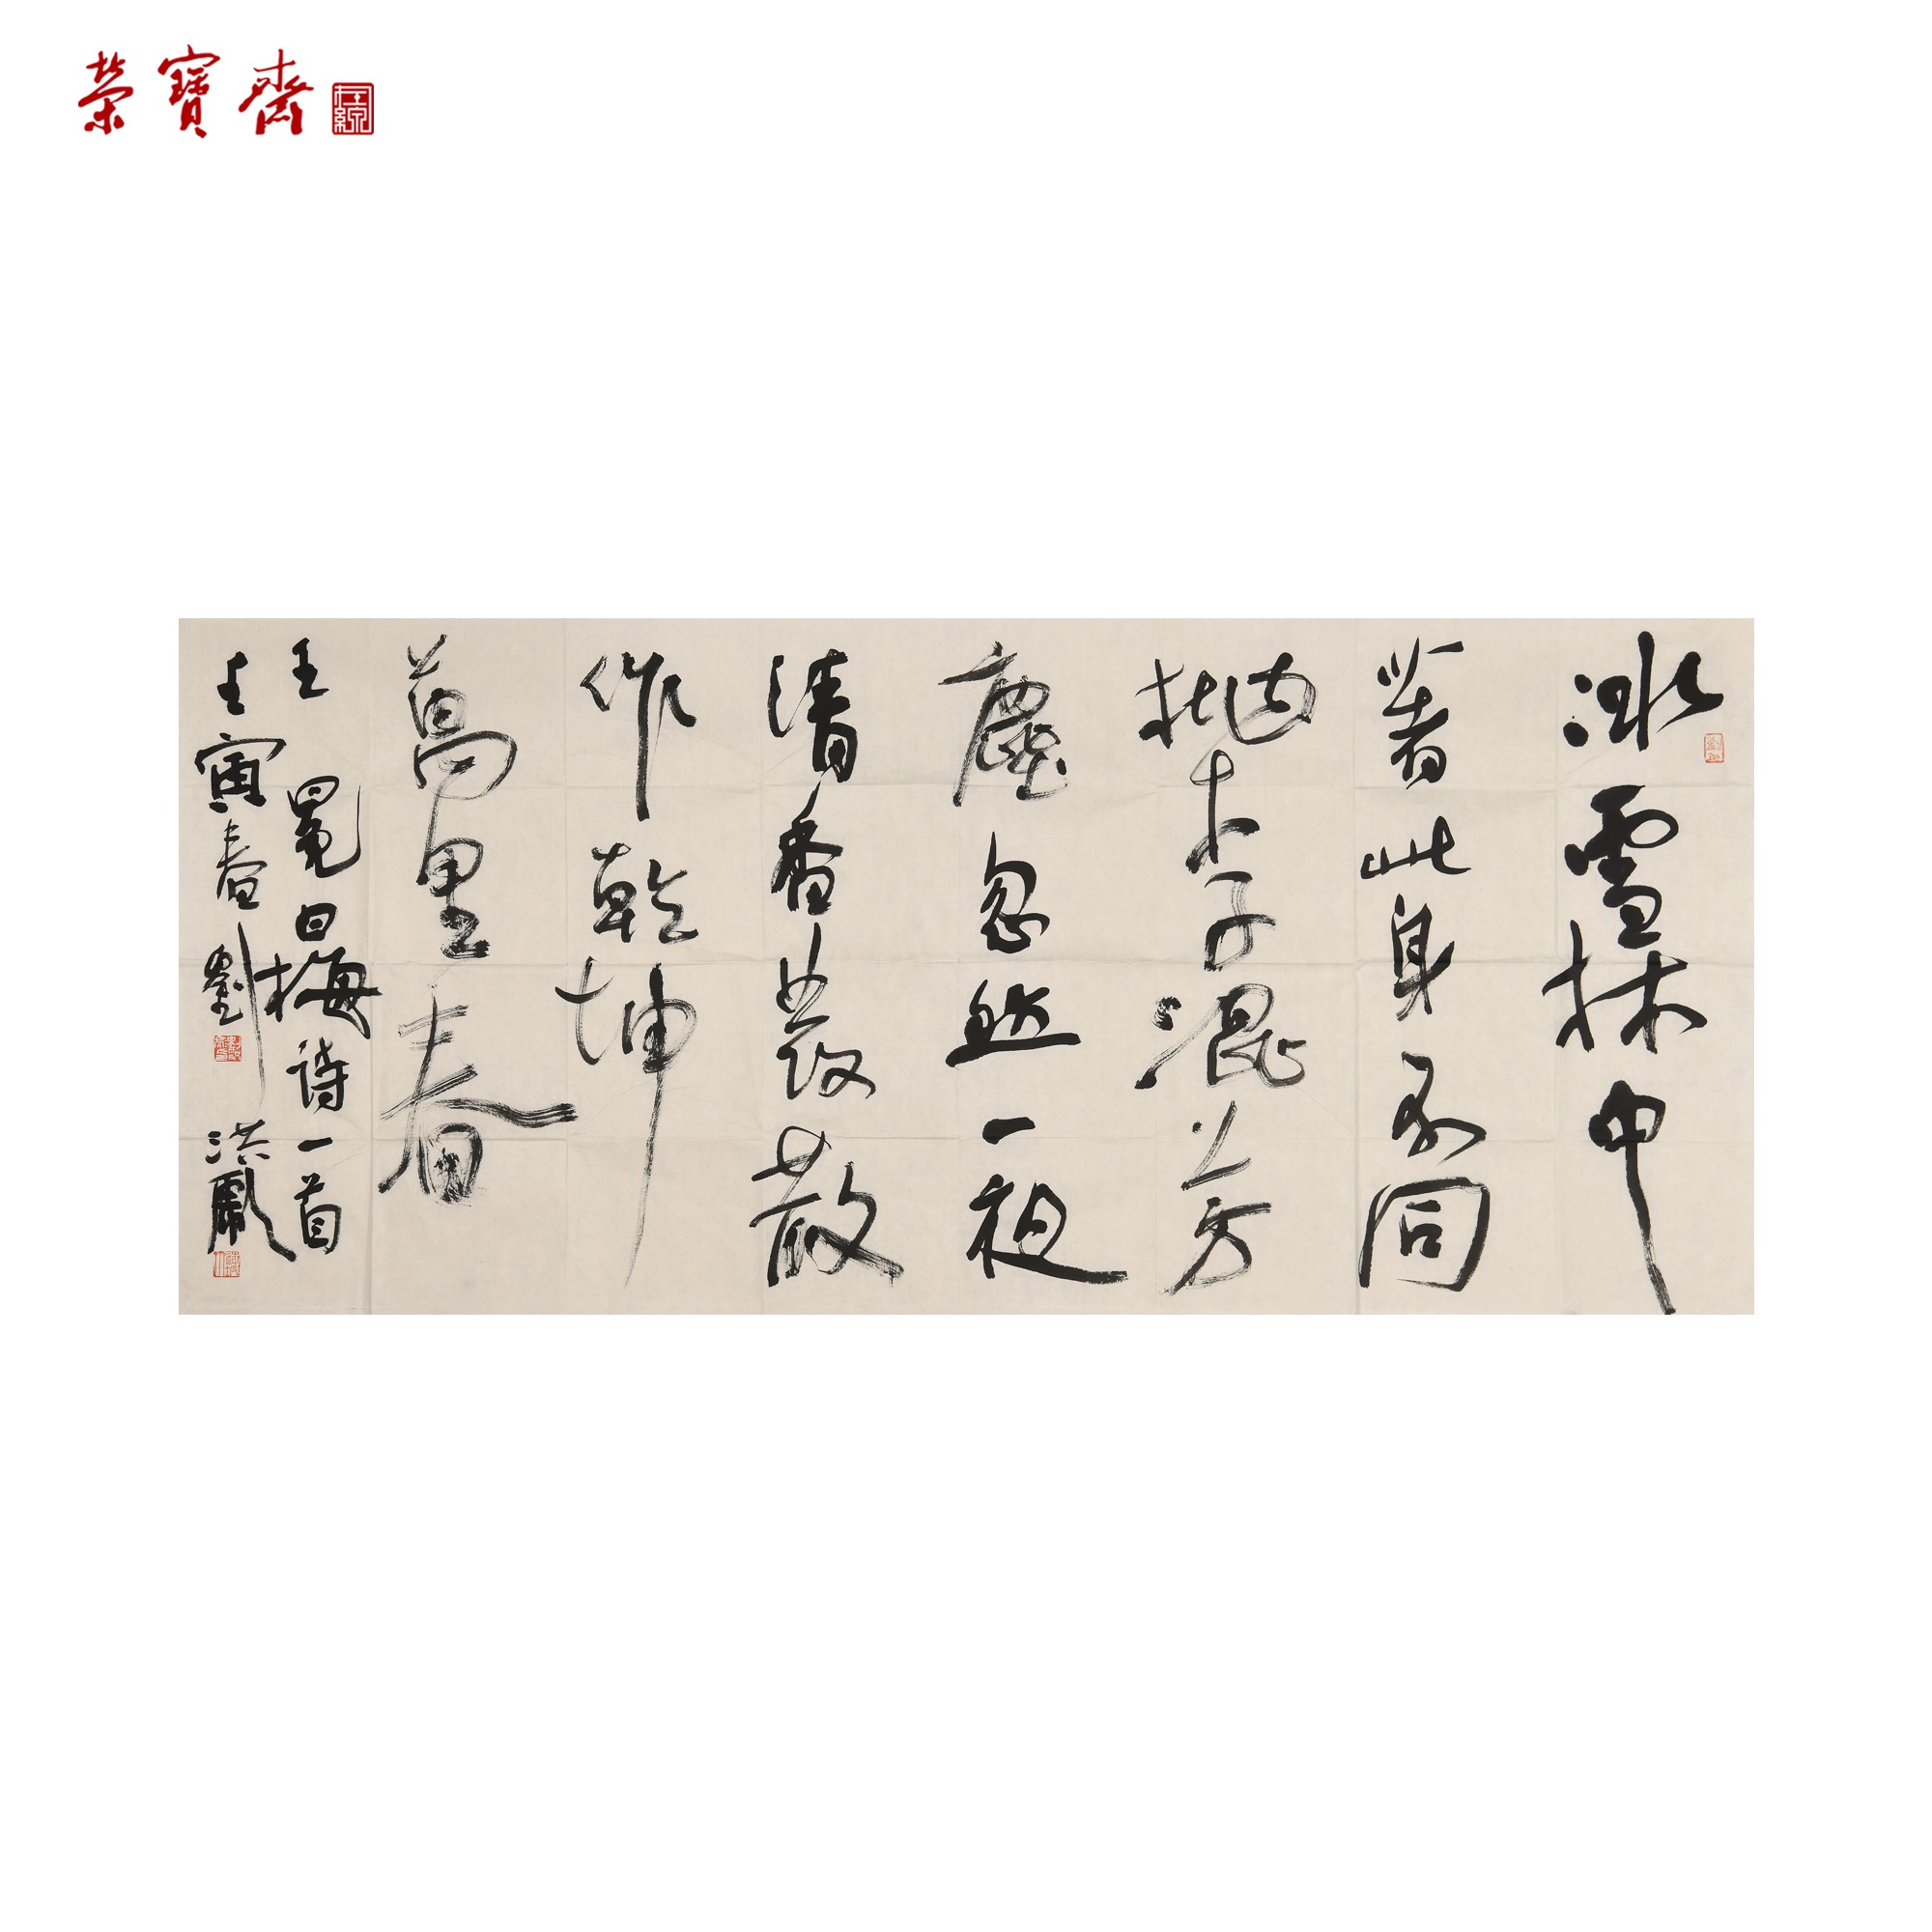 榮寶齋
冰雪林中
著此身不同
桃李混芳
塵忽然一夜
清香發散
作乾坤
萬里春
王冕白梅詩一首
壬寅春劉洪彪